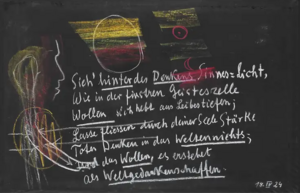 Sieh' hinter des Denkens Sinnes=Licht,
Wie in der finstren Geisteszelle
Wollen sich hebt aus Leibestiefen;
Lasse fliessen durch deiner Seele Stärke
Totes Denken in das Weltennichts;
Und das Wollen, es erstehet
als Weltgedankenschaffen.